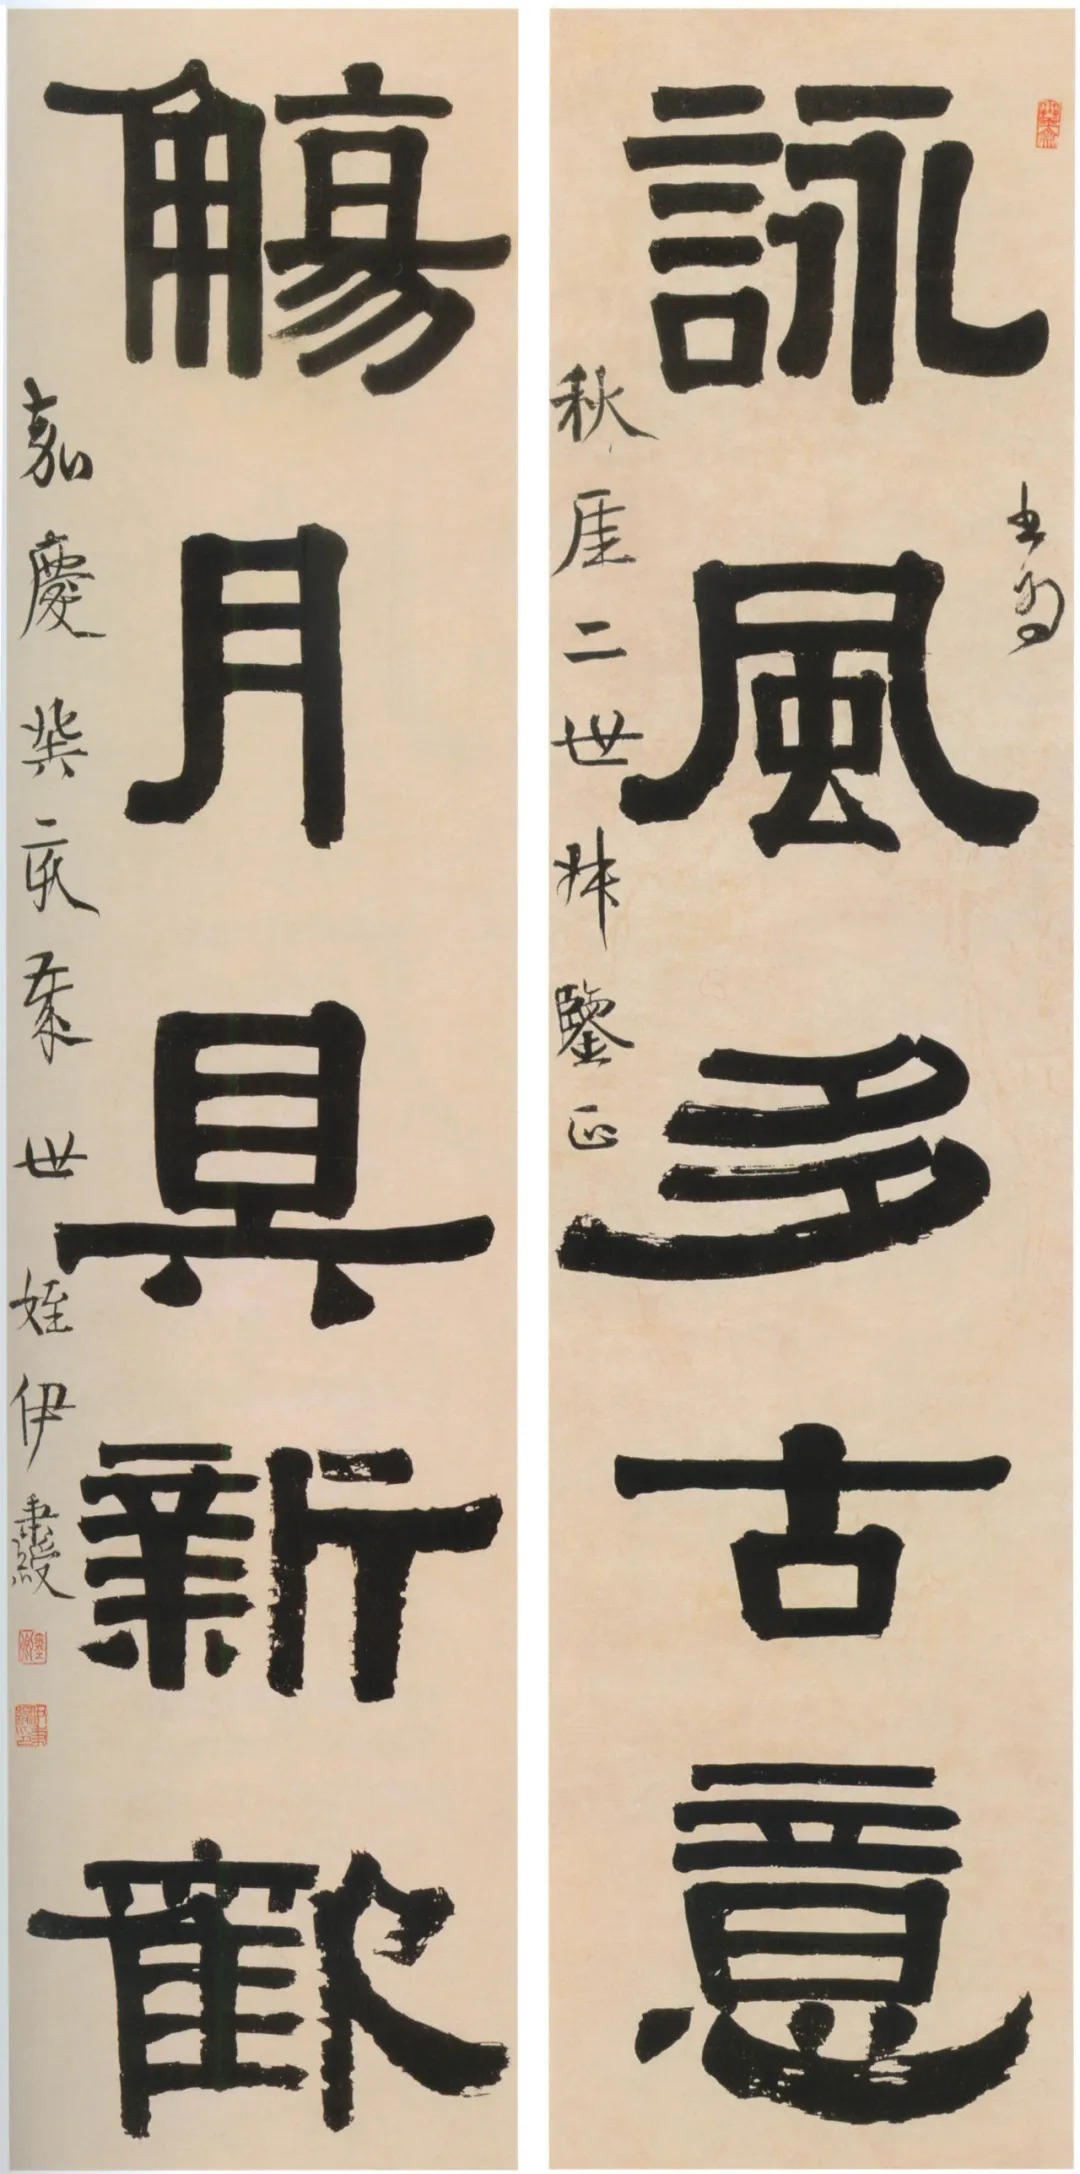 詠風多古意
書為
秋厓二世叔鑒正
觴月具新歡
嘉慶癸亥秊世姪伊秉綬